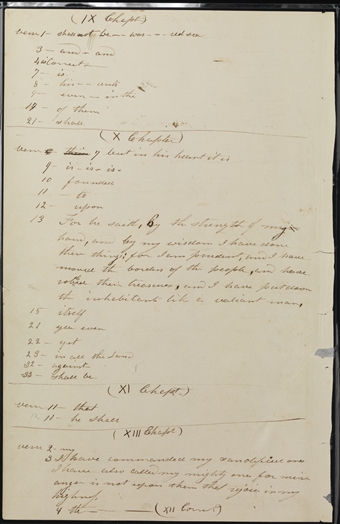 (IX Chapt)
verse 1 - shall not be — was — red sea
3 — and — and
4 correct
7 - is
8 - his — and
9 - even — in the
14 - of them
21 - shall
(X Chapter)
verse 7 but in his heart it is
9 - is - is - is -
10 founded
11 - to
12 - upon
13 For he saith, By the strength of my
hand, and by my wisdom I have done
these things; for I am prudent, and I have
moved the borders of the people, and have
robbed their treasures, and I have put down
the inhabitants like a valiant man,
15 itself
21 yea even
22 - yet
23 - in all the land
32 - against
33 - shall be
(XI Chapt)
verse 11 - that
11 - he shall
(XIII Chapt)
verse 2 - my
3 I have commanded my sanctified ones
I have also called my mighty ones for mine
anger is not upon them that rejoice in my
highness
4 the (XII Correct)